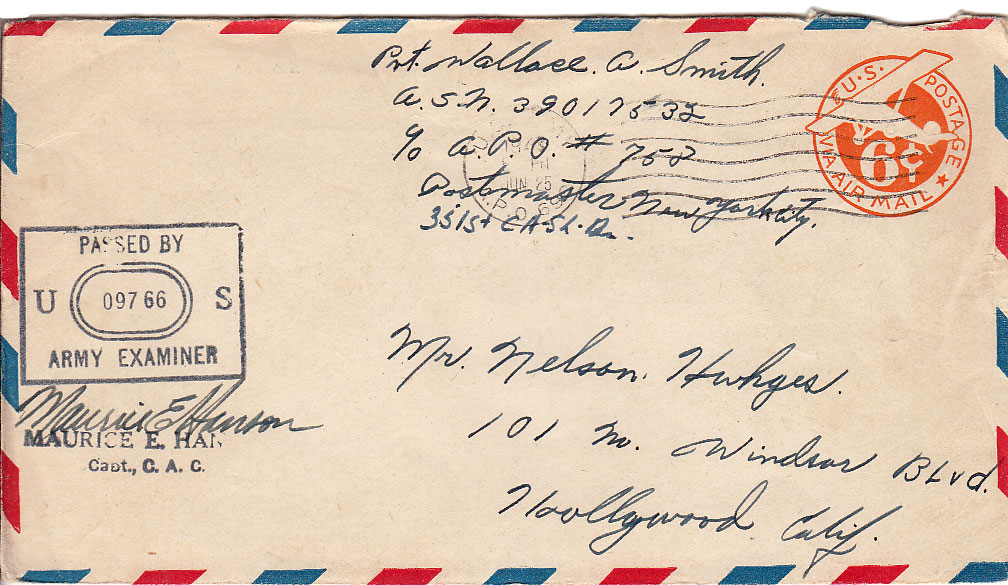 Pvt. Wallace. A. Smith.
A.S.N. 39017532
c/o A.P.O. # 758
Postmaster New York City.
351st CA SL. Bn.
JUN 25
U.S. POSTAGE
6¢
VIA AIR MAIL
PASSED BY
U 09766 S
ARMY EXAMINER
Maurice E Hanson
MAURICE E. HAN
Capt., C. A. C.
Mr. Nelson. Huhges.
101 N. Windsor Blvd.
Hoollywood Calif.